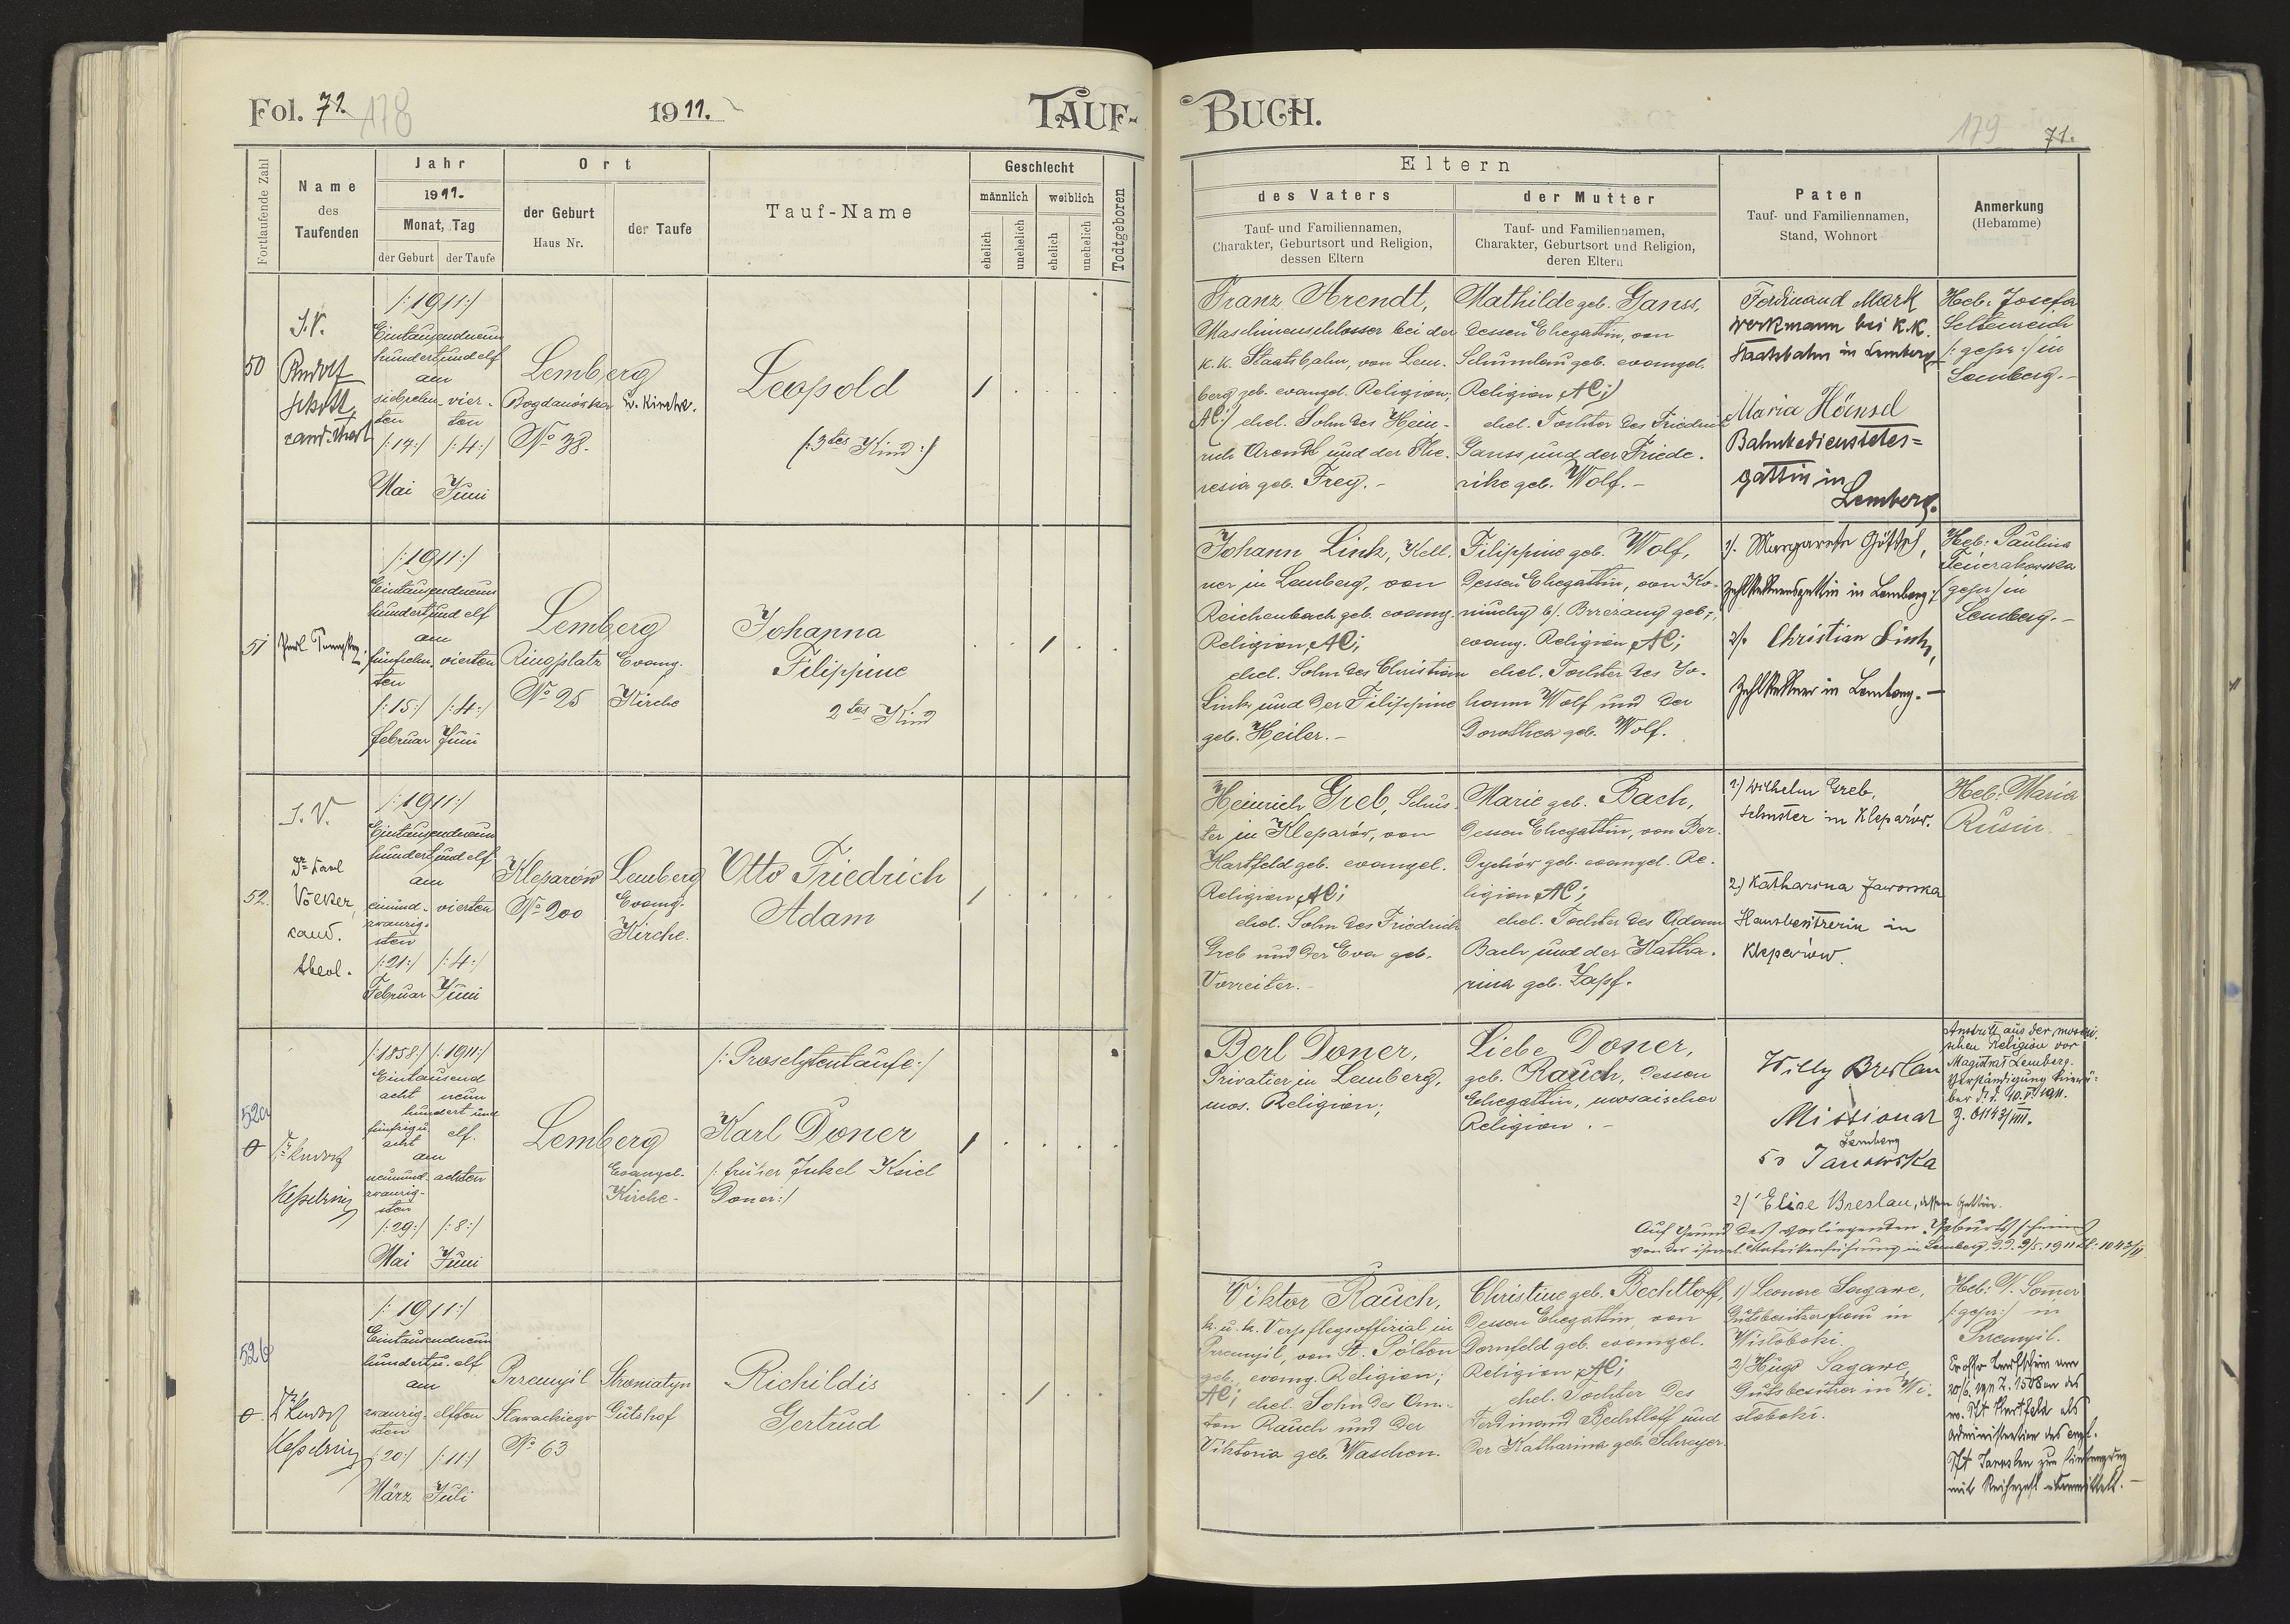 Fol. 71. 178
1911.
TAUF-
BUCH.
179 71.
Fortlaufende Zahl
Name
des
Taufenden
Jahr
1911.
Monat, Tag
der Geburt
der Taufe
Ort
der Geburt
Haus Nr.
der Taufe
Tauf-Name
Geschlecht
männlich
weiblich
ehelich
unehelich
ehelich
unehelich
Todtgeboren
Eltern
des Vaters
Tauf- und Familiennamen,
Charakter, Geburtsort und Religion,
dessen Eltern
der Mutter
Tauf- und Familiennamen,
Charakter, Geburtsort und Religion,
deren Eltern
Paten
Tauf- und Familiennamen,
Stand, Wohnort
Anmerkung
(Hebamme)
50
I. V.
Rudolf
cand.
/:1911:/
Eintausendneun
hundertundelf
am
siebzehn-
ten
/:17:/
Mai
vier-
ten
/:4:/
Juni
Lemberg
Bogdanówka
No 38.
Ev. Kirche.
Leopold
(:3tes Kind:)
Franz Arendt,
Maschinenschlosser bei der
k.k. Staatsbahn, von Lem-
berg geb. evangel. Religion,
AC:/ ehel. Sohn des Hein-
rich Arendt und der The-
resia geb. Frey. -
Mathilde geb. Ganss,
dessen Ehegattin, von
Schumlau geb. evangel.
Religion AC;/
ehel. Tochter des Friedrich
Ganss und der Friede-
rike geb. Wolf. -
Ferdinand Mark
Werkmann bei k.k.
Staatsbahn in Lemberg
Maria Hönsel
Bahnbedienstetes=
gattin in
Lemberg.
Heb: Josefa
Seltenreich
/:gepr:/ in
Lemberg. -
51
/:1911:/
Eintausendneun
hundertund elf
am
fünfzehn-
ten
/:15:/
Februar
vierten
/:4:/
Juni
Lemberg
Ringplatz
No 25
Evang.
Kirche
Johanna
Filippine
2tes Kind
Johann Link, Kell-
ner in Lemberg, von
Reichenbach geb. evang.
Religion, AC;
ehel. Sohn des Christian
Link und der Filippine
geb. Heiler. -
Filippine geb. Wolf,
dessen Ehegattin, von Ko-
niuchy b/. Brzezany geb;
evang. Religion AC;
ehel. Tochter des Jo-
hann Wolf und der
Dorothea geb. Wolf.
1/. Margarete
in Lemberg;
2/. Christian Link,
Zahlkellner in Lemberg. -
Heb: Paulina
(gepr/ in
Lemberg. -
52.
I. V.
Dr Karl
Völker,
cand.
theol.
/:1911:/
Eintausendneun
hundertund elf
am
einund-
zwanzig-
sten
/:21:/
Februar
vierten
/:4:/
Juni
Kleparów
No 200
Lemberg
Evang.
Kirche.
Otto Friedrich
Adam
Heinrich Greb, Schus-
ter in Kleparów, von
Hartfeld geb. evangel.
Religion AC;
ehel. Sohn des Friedrich
Greb und der Eva geb.
Vorreiter. -
Marie geb. Bach,
dessen Ehegattin, von Ber-
dychów geb. evangel. Re-
ligion AC;
ehel. Tochter des Adam
Bach und der Katha-
rina geb. Zapf.
1) Wilhelm Greb,
Schuster in Kleparów.
2) Katharina Jaworska
Hausbesitzerin in
Kleparów.
Heb: Maria
Rusin.
52a
0
Dr Rudolf
Kesselring
/:1858:/ /:1911:/
Eintausend
acht neun
hundert und
fünfzig u.
acht
elf.
am
neunund-
zwanzig-
sten
/:29:/
Mai
achten
/:8:/
Juni
Lemberg
Evangel.
Kirche -
/:Proselytentaufe:/
Karl Doner
/:früher Jukel Ksiel
Doner:/
Berl Doner,
Privatier in Lemberg,
mos. Religion;
Liebe Doner,
geb. Rauch, dessen
Ehegattin, mosaischer
Religion. -
Willy Breslau
Missionar
Lemberg
50 Janowska
2/ Elise Breslau, dessen Gattin.
Auf Grund des vorliegenden Geburtsscheines
von der israel. Matrikenführung in Lemberg d.d. 9/5. 1911 Zl: 1043/II
Austritt aus der mosai-
schen Religion vor
Magistrat Lemberg.
Verständigung hierü-
ber d.d. 10. V. 1911.
Z. 61143/III.
52b
0.
Dr Rudolf
Kesselring
/:1911:/
Eintausendneun
hundertu. elf
am
zwanzig-
sten
/:20:/
März
elften
/:11:/
Juli
Przemyśl
Słowackiego
No 63
Stroniatyn
Gutshof
Richildis
Gertrud
Viktor Rauch,
k. u. k. Verpflegsoffizial in
Przemyśl, von St. Pölten
geb., evang. Religion;
AC; ehel. Sohn des An-
ton Rauch und der
Viktoria geb. Waschen.
Christine geb. Bechtloff,
dessen Ehegattin, von
Dornfeld geb. evangel.
Religion AC;
ehel. Tochter des
Ferdinand Bechtloff und
der Katharina geb. Schreyer.
1) Leonore Sagawe,
Gutsbesitzersfrau in
Wisloboki.
2) Hugo Sagawe,
Gutsbesitzer in Wi-
sloboki.
Heb: V. Somer
/:gepr:/ in
Przemyśl.